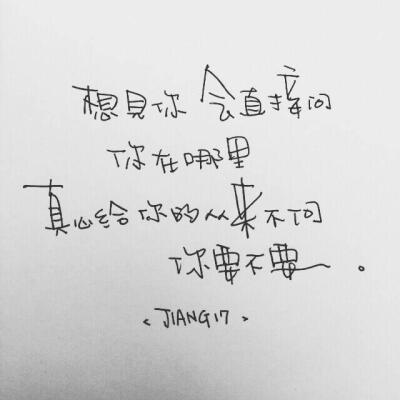 想見你 会直接问
你在哪里
真心给你的从来不问
你要不要。
< JIANG17 >